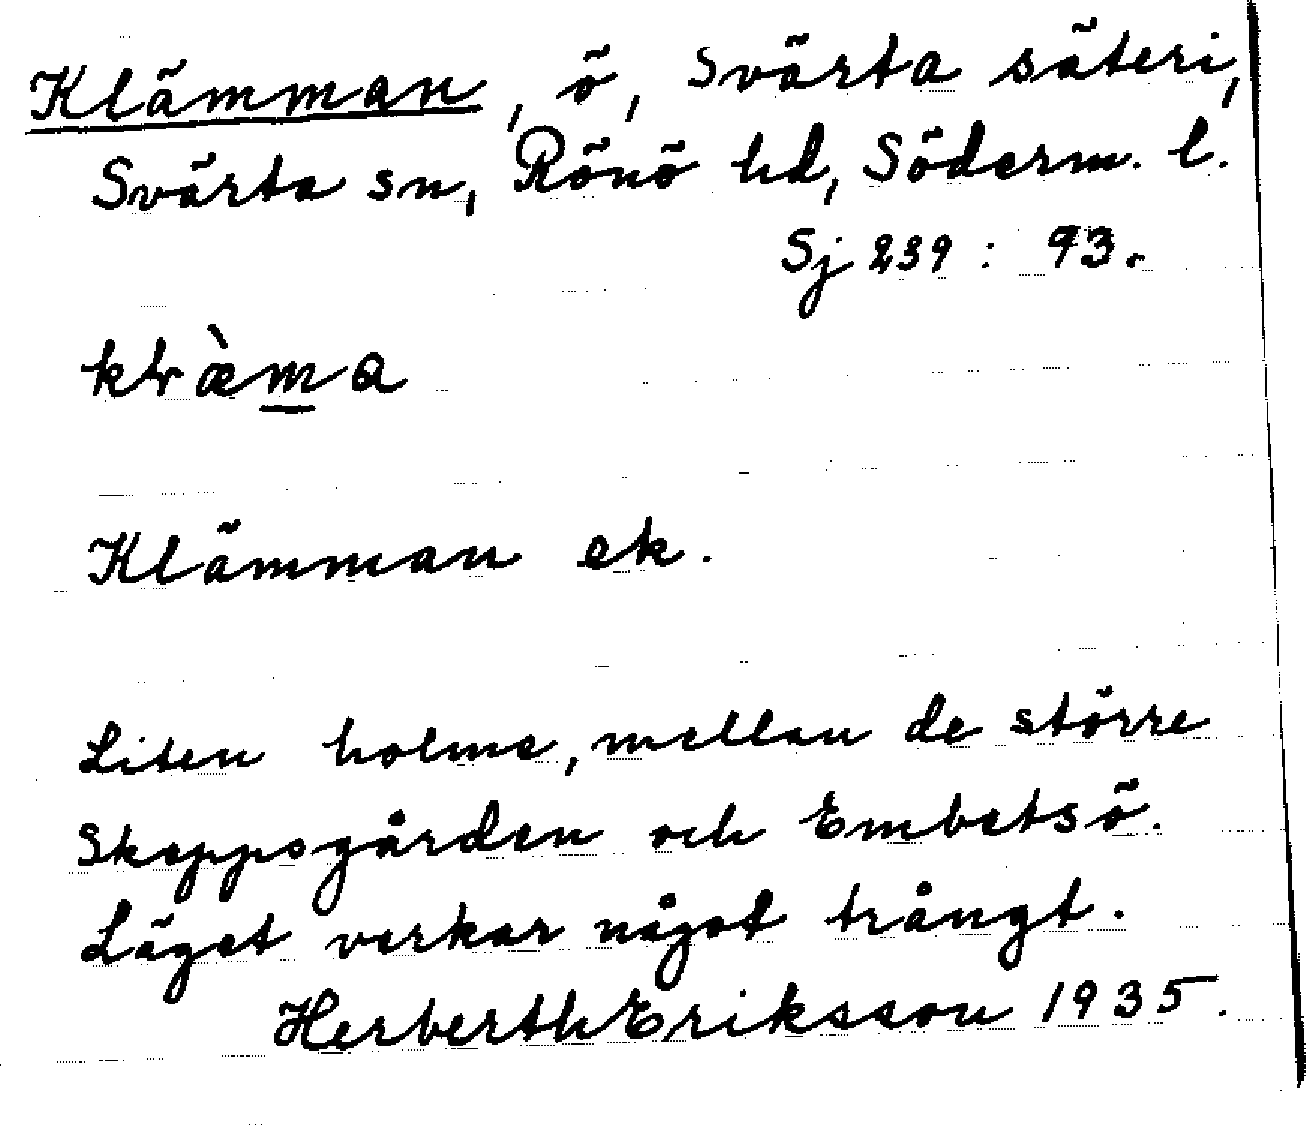 Klämman, ö, Svärta säteri,
Svärta sn, Rönö hd, Söderm. l.
Sj 239 : 93.
Klämman ek.
Liten holme, mellan de större
Skeppsgården och Embetsö.
Läget verkar något trångt.
Herberth Eriksson 1935.